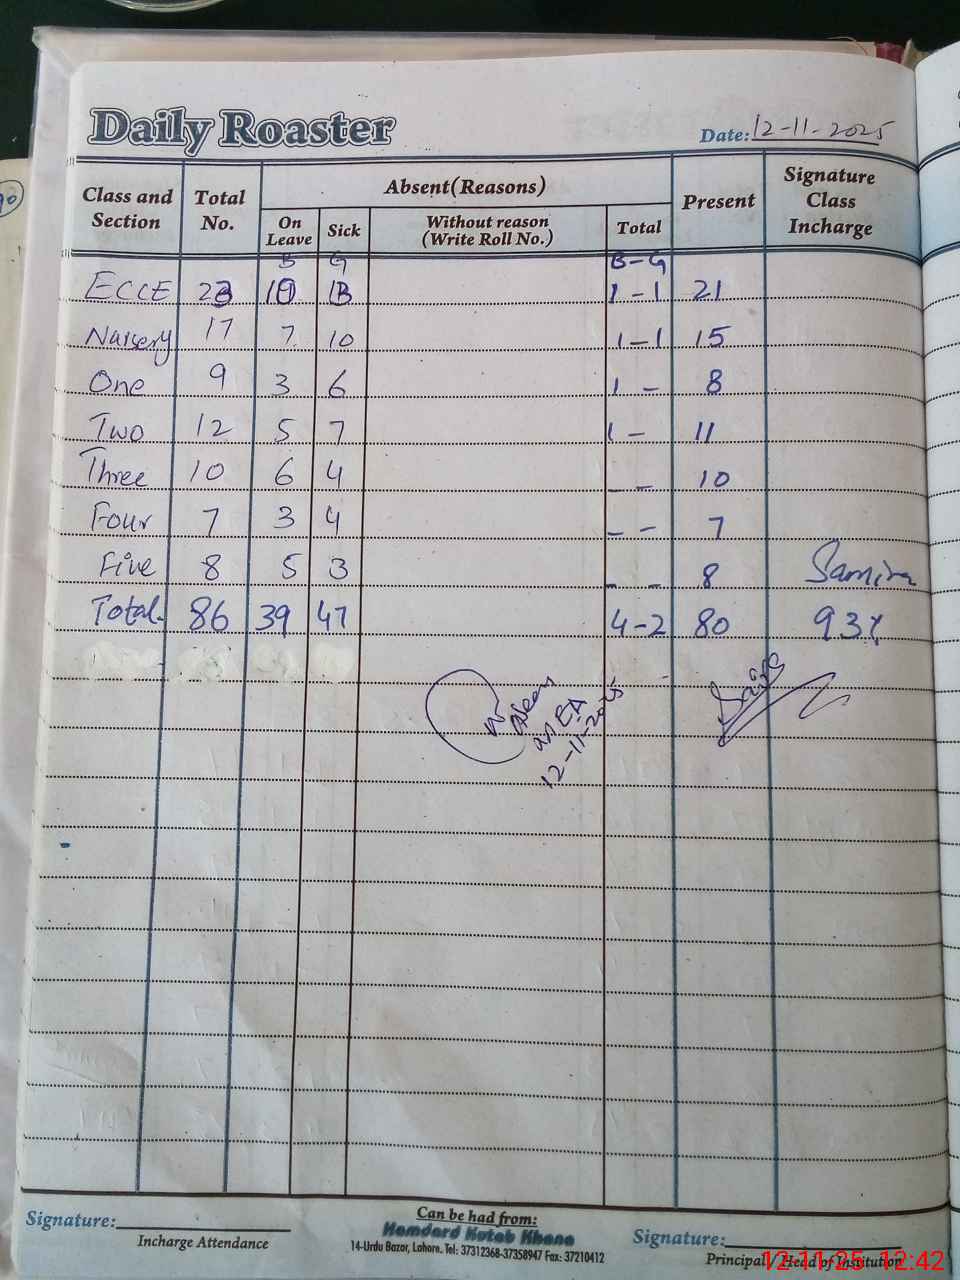 Daily Roaster
Date: 12-11-2025
Class and Section Total No. Absent(Reasons) Present Signature Class Incharge
On Leave Sick Without reason (Write Roll No.) Total
B G B-G
ECCE 23 10 13 1-1 21
Nursery 17 7 10 1-1 15
One 9 3 6 1 - 8
Two 12 5 7 1 - 11
Three 10 6 4 - - 10
Four 7 3 4 - - 7
Five 8 5 3 - - 8 Samina
Total 86 39 47 4-2 80 93%
12-11-2025
Signature:
Incharge Attendance
Can be had from:
Hamdard Kutab Khana
14-Urdu Bazar, Lahore. Tel: 37312368-37358947 Fax: 37210412
Signature:
Principal / Head of Institution
12-11-25 12:42